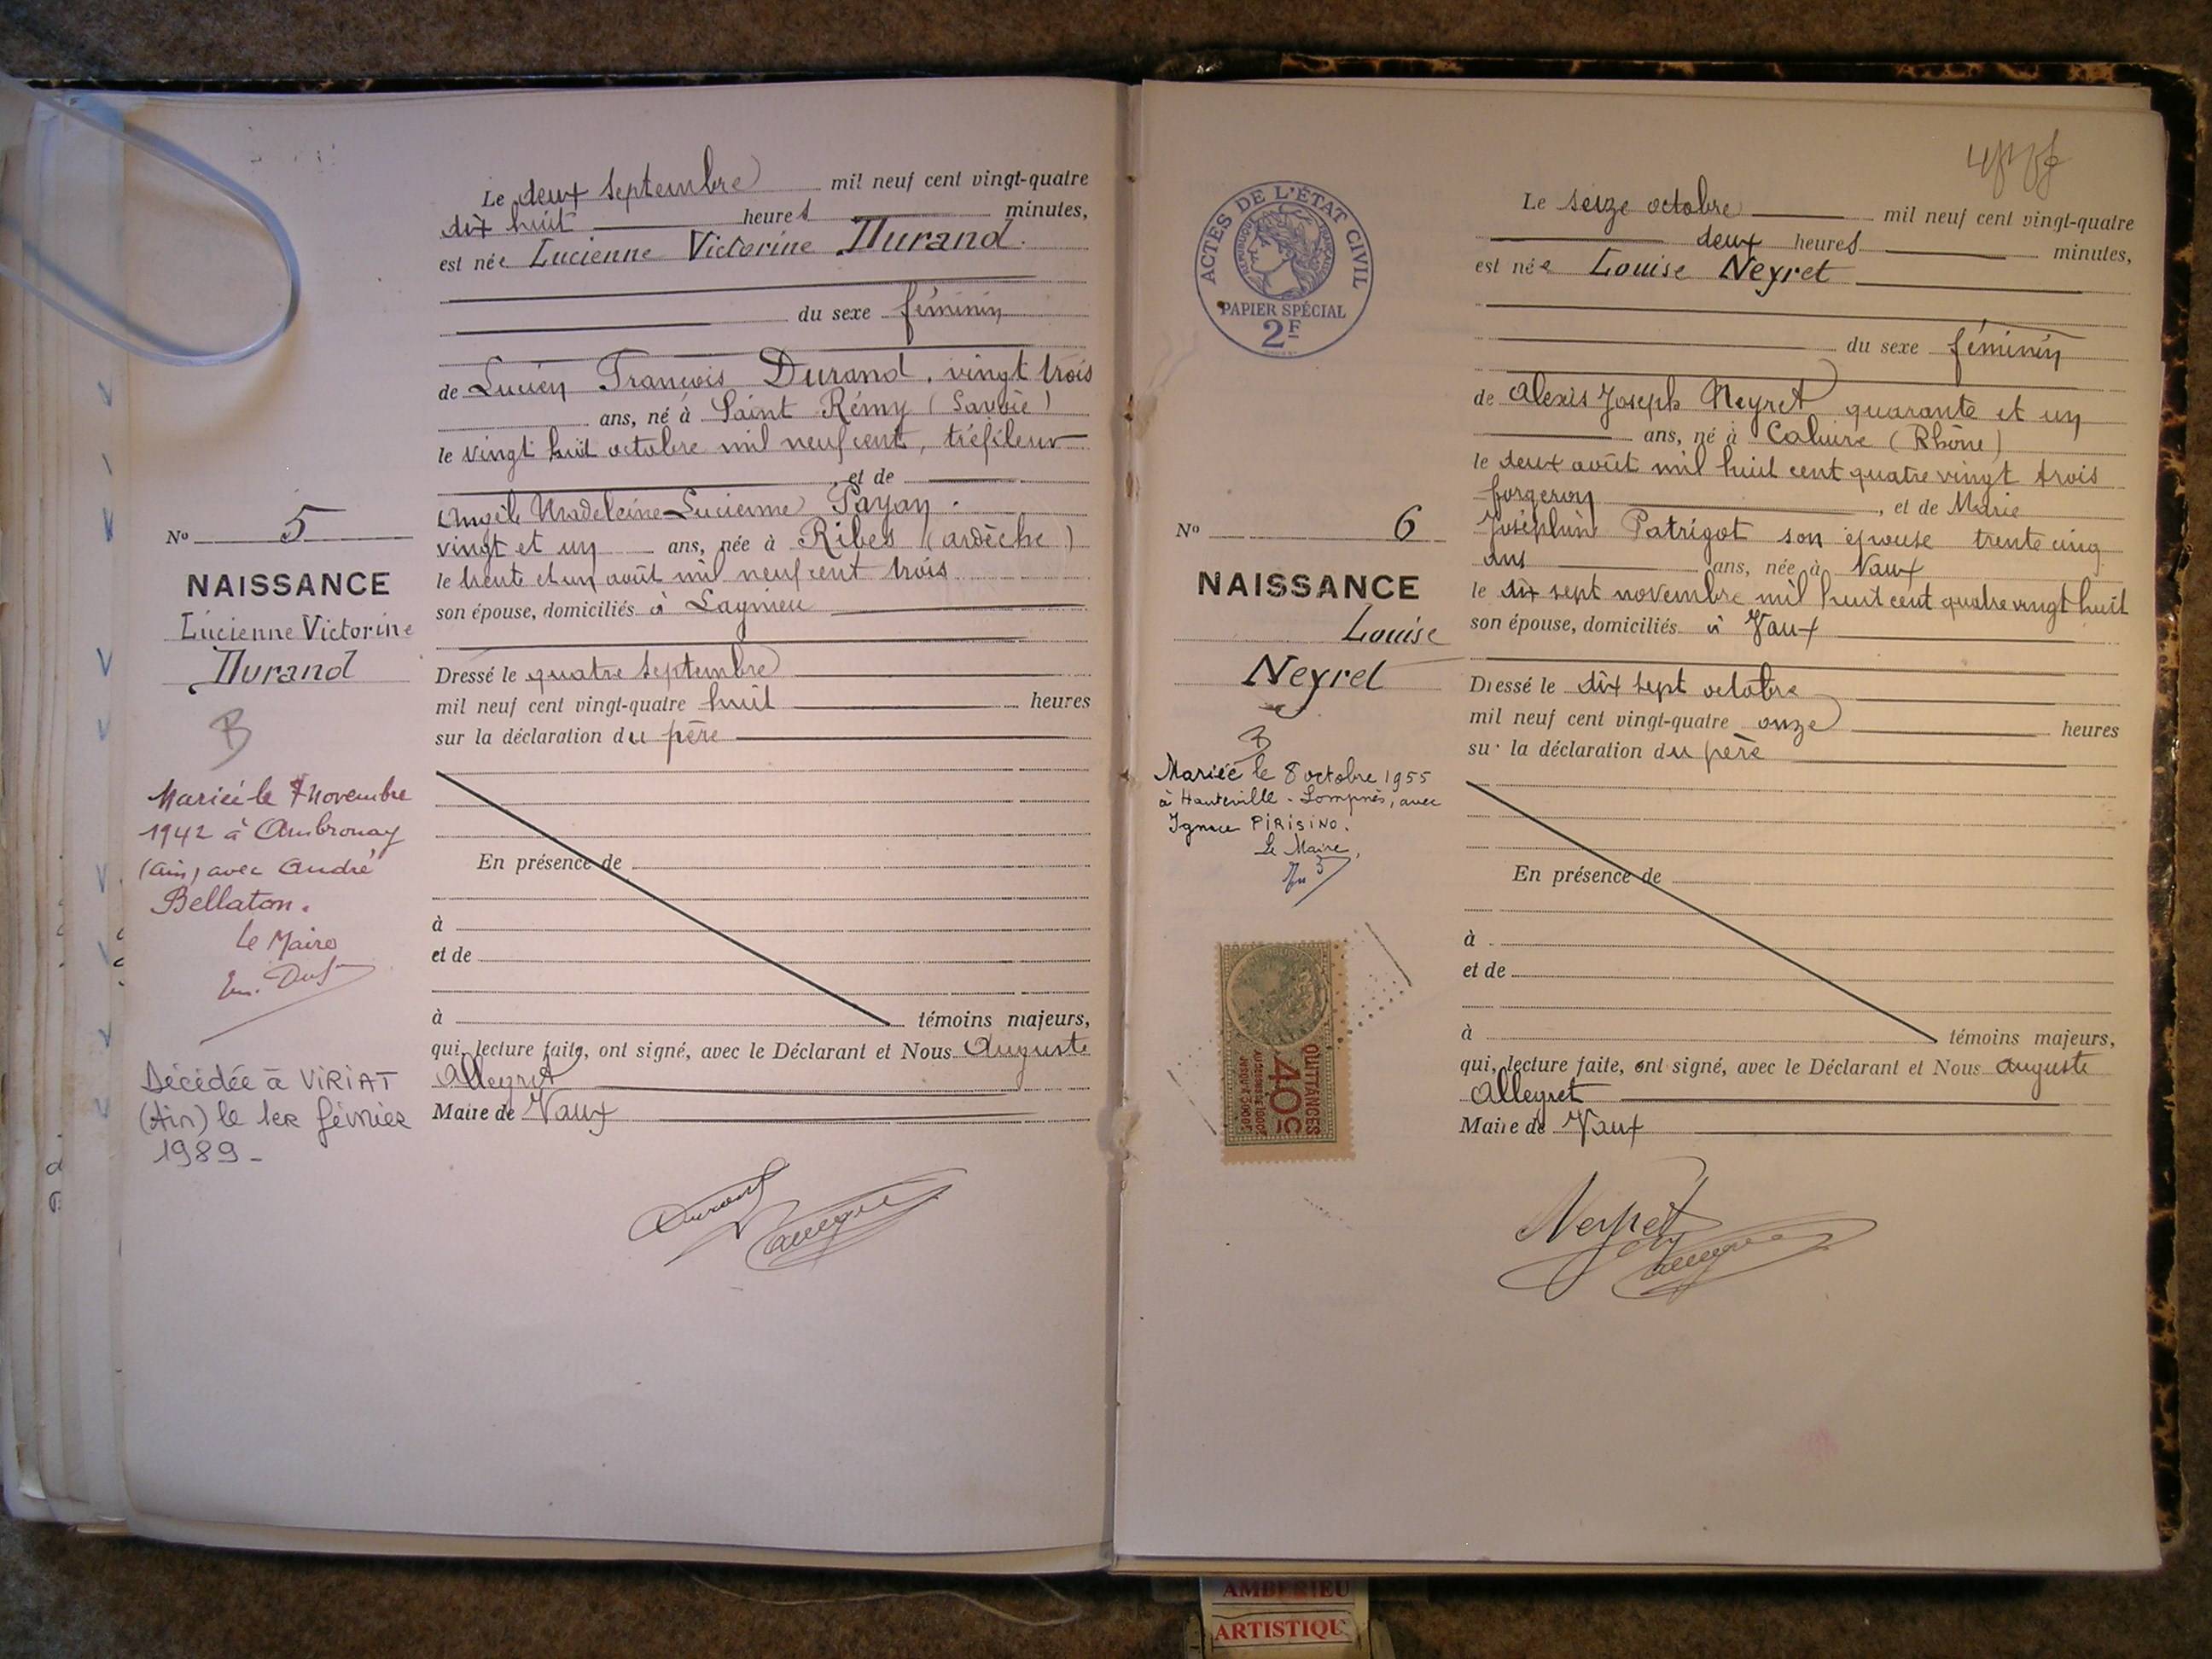 Le deux septembre mil neuf cent vingt-quatre
dix huit heures minutes,
est née Lucienne Victorine Durand.
du sexe féminin
de Lucien François Durand, vingt trois
ans, né à Saint Rémy (Savoie)
le vingt huit octobre mil neuf cent, tréfileur
et de
Angèle Madeleine Lucienne Payan.
vingt et un ans, née à Ribes (ardèche)
le trente et un août mil neuf cent trois
son épouse, domiciliés à Lagnieu
Dressé le quatre septembre
mil neuf cent vingt-quatre huit heures
sur la déclaration du père
En présence de
à
et de
à témoins majeurs,
qui, lecture faite, ont signé, avec le Déclarant et Nous Auguste
Alleyret
Maire de Vaux
Durand
No 5
NAISSANCE
Lucienne Victorine
Durand
B
Mariée le 7 Novembre
1942 à Ambronay
(Ain) avec André
Bellaton.
Le Maire
Décédée à VIRIAT
(Ain) le 1er février
1989-
ACTES DE L'ÉTAT CIVIL
RÉPUBLIQUE FRANÇAISE
PAPIER SPÉCIAL
2F
Le seize octobre mil neuf cent vingt-quatre
deux heures minutes,
est née Louise Neyret
du sexe féminin
de Alexis Joseph Neyret quarante et un
ans, né à Caluire (Rhône)
le deux août mil huit cent quatre vingt trois
forgeron, et de Marie
Joséphine Patrigot son épouse trente cinq
ans ans, née à Vaux
le dix sept novembre mil huit cent quatre vingt huit
son épouse, domiciliés à Vaux
Dressé le dix sept octobre
mil neuf cent vingt-quatre onze heures
sur la déclaration du père
En présence de
à
et de
à témoins majeurs,
qui, lecture faite, ont signé, avec le Déclarant et Nous Auguste
Alleyret
Maire de Vaux
Neyret
No 6
NAISSANCE
Louise
Neyret
B
Mariée le 8 octobre 1955
à Hauteville-Lompnès, avec
Ignace PIRISINO.
Le Maire,
QUITTANCES
40c
AMBERIEU
ARTISTIQU